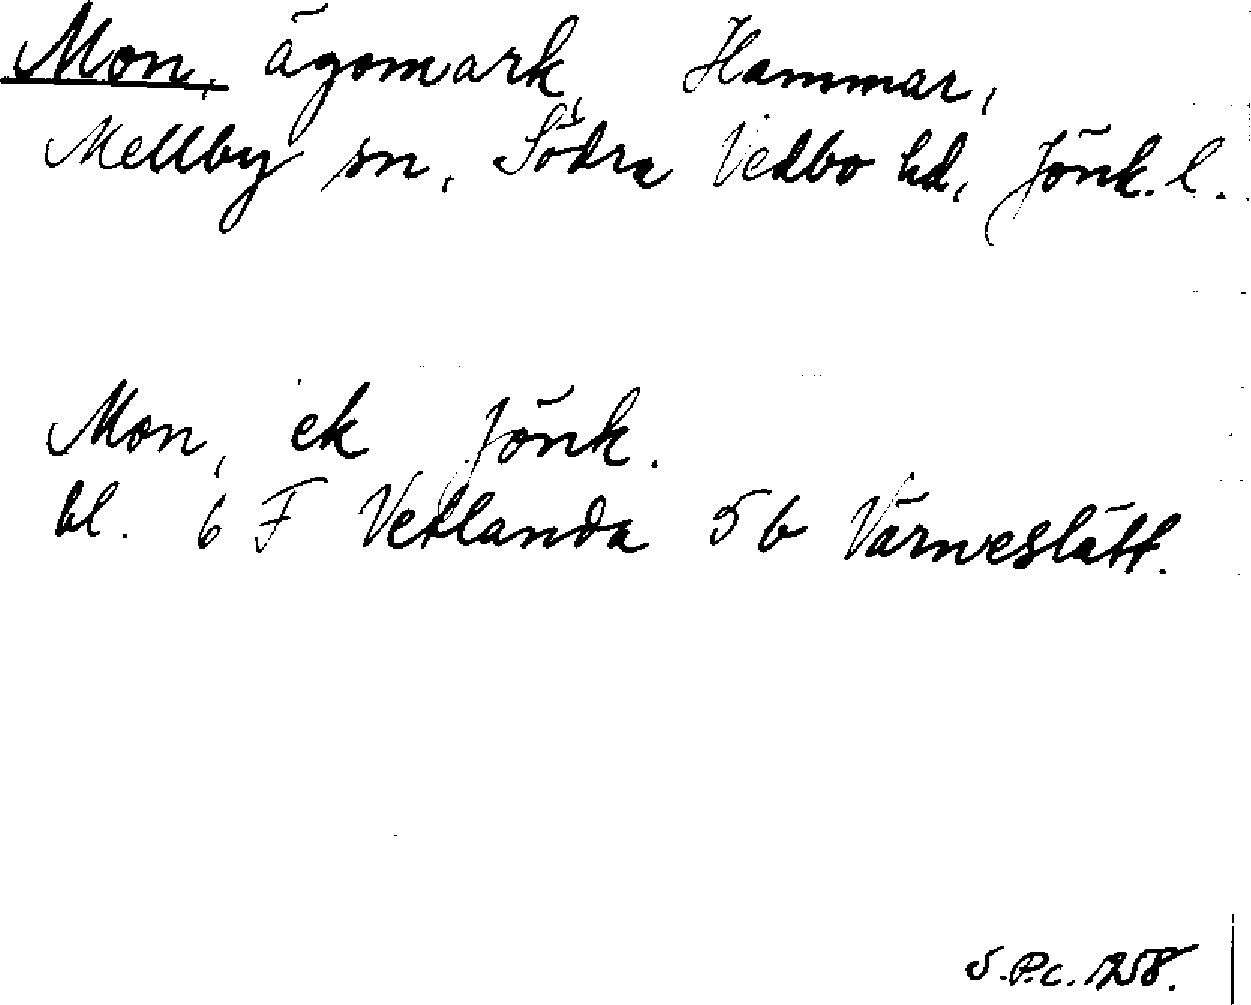 Mon, ägomark, Hammar,
Mellby sn, Södra Vedbo hd, Jönk. l.
Mon, ek Jönk.
bl. 6 F Vetlanda 5b Värneslätt.
S.P.c. 1258.